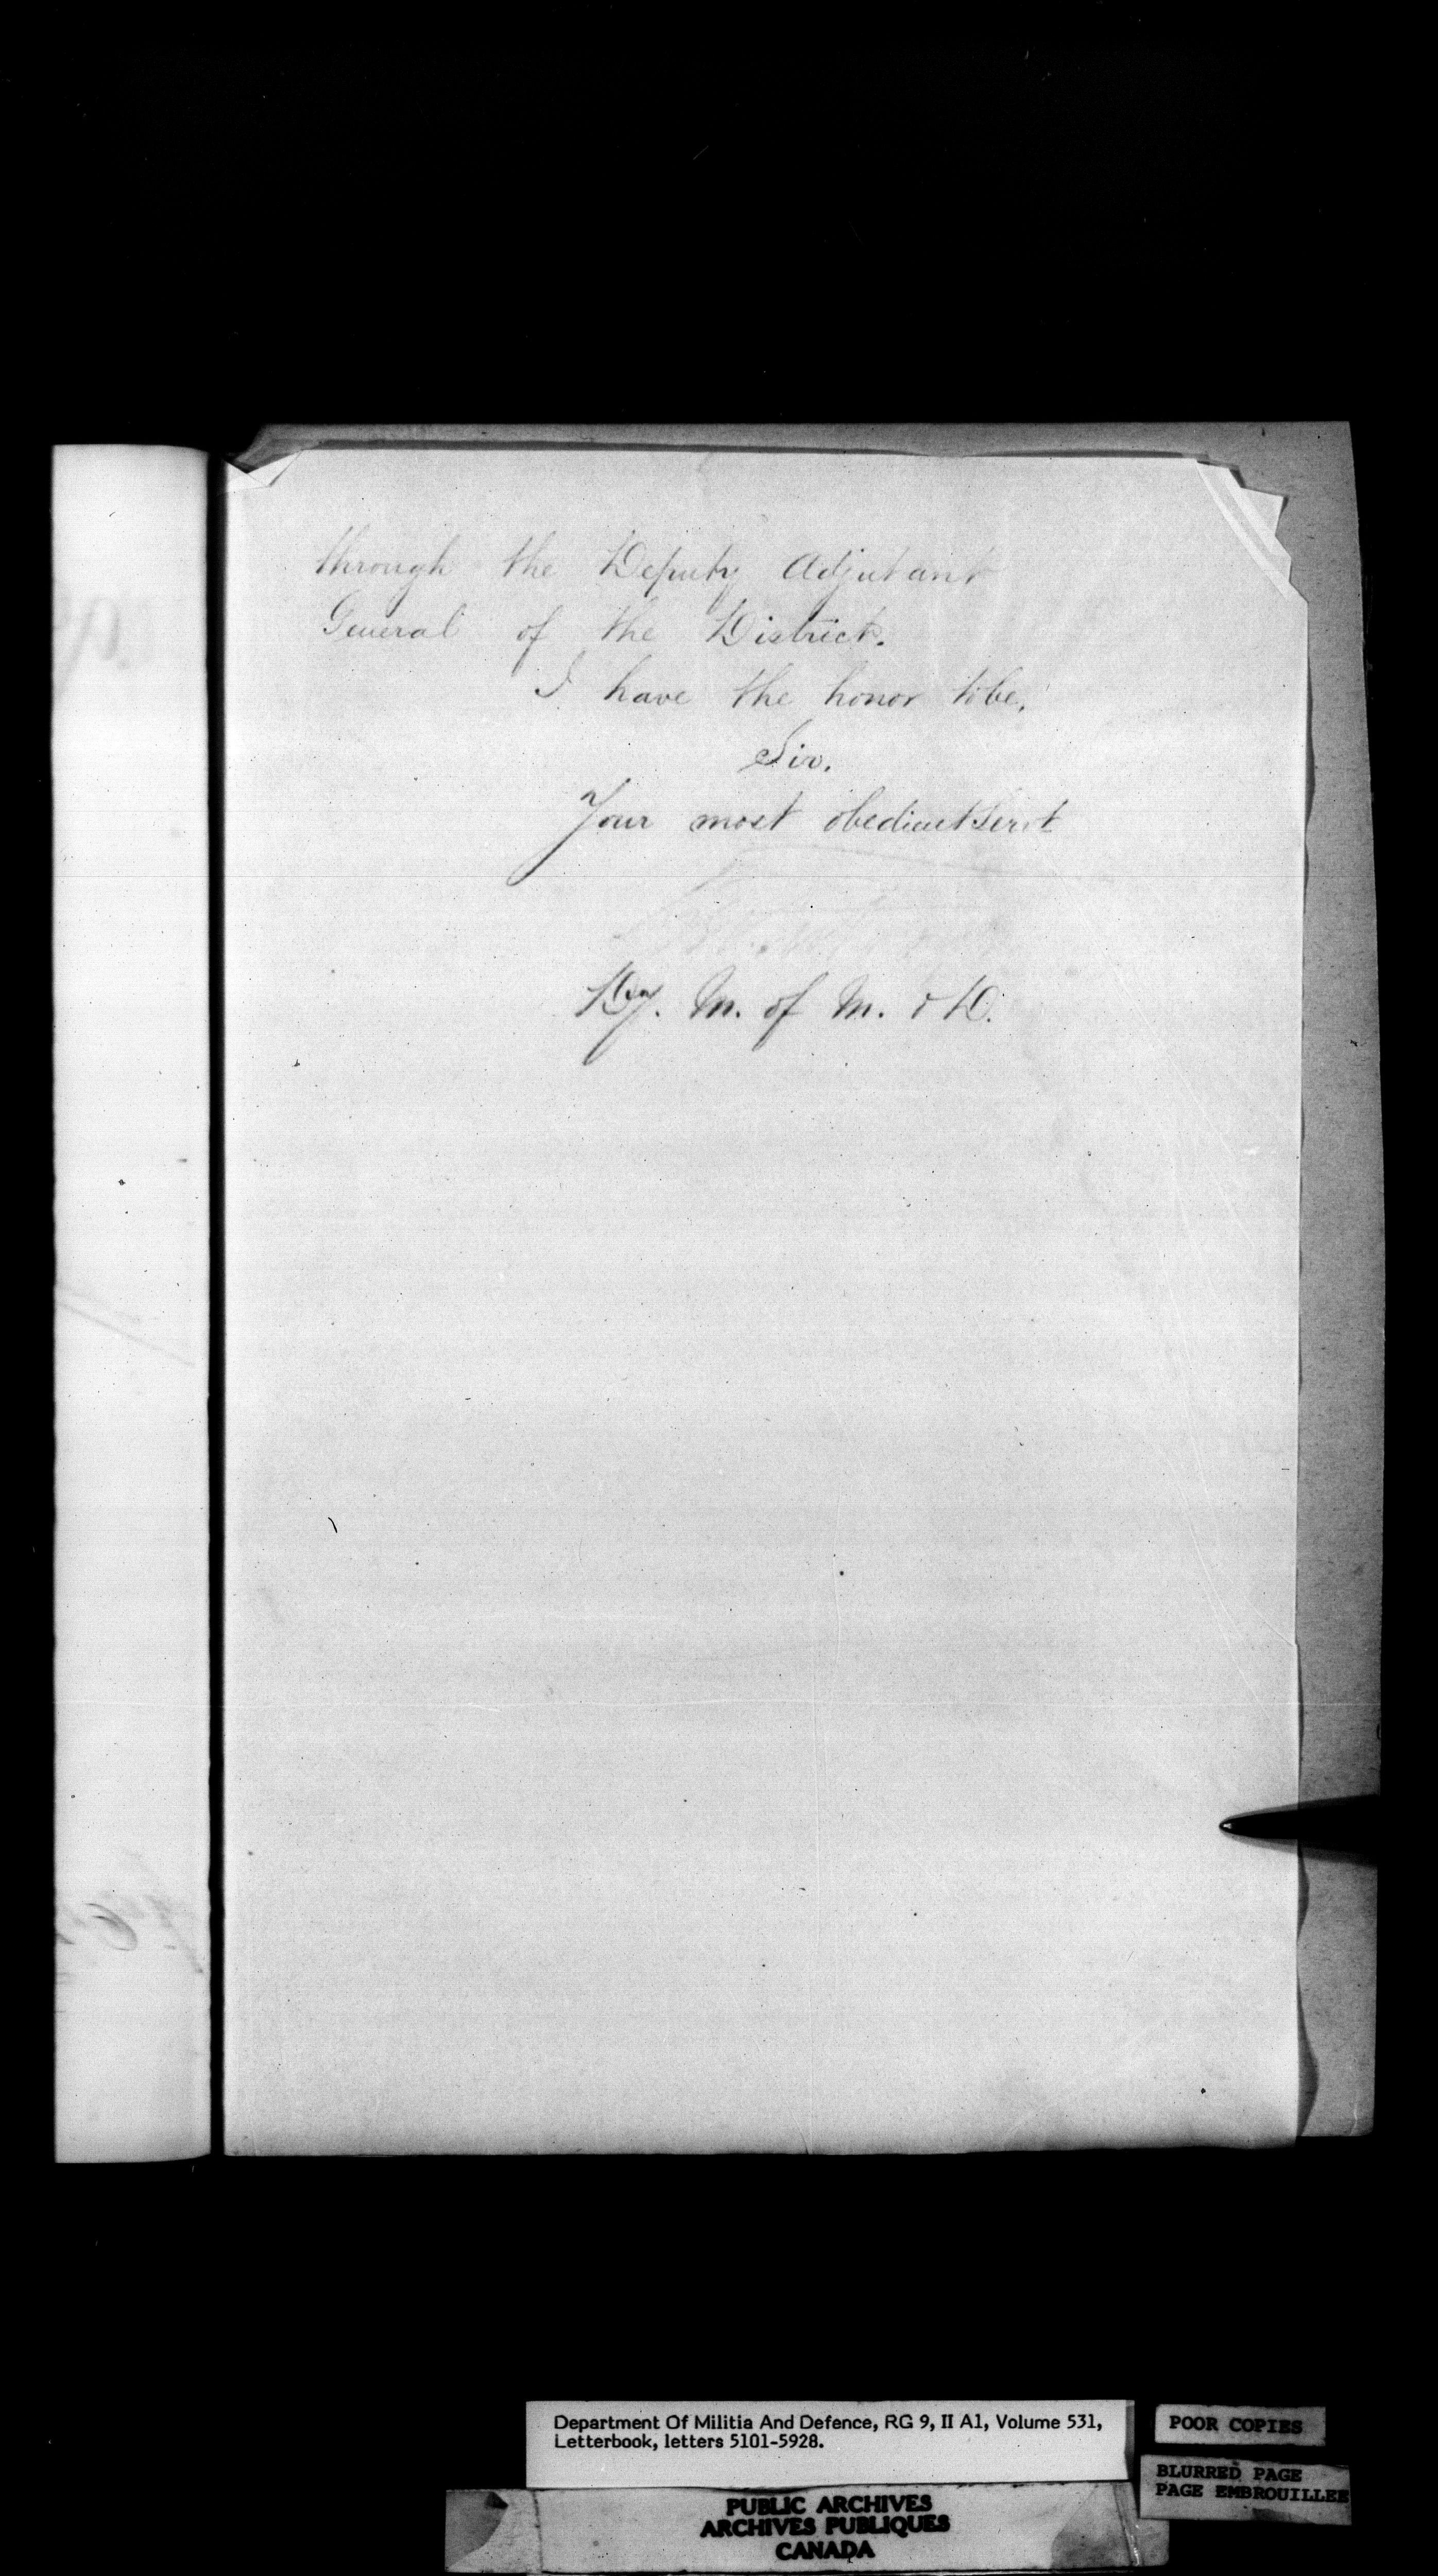 through the Deputy Adjutant
General of the District.
I have the honor to be,
Sir.
Your most obedient Servt
Dy. M. of M. & D.
Department Of Militia And Defence, RG 9, II A1, Volume 531,
Letterbook, letters 5101-5928.
POOR COPIES
BLURRED PAGE
PAGE EMBROUILLEE
PUBLIC ARCHIVES
ARCHIVES PUBLIQUES
CANADA